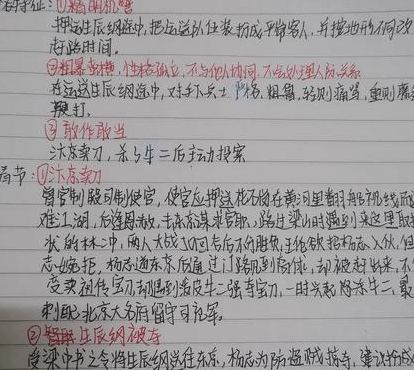 ①精明机警
押运生辰纲途中,把运送队伍装扮成平常客人,并按地形不同改
走路时间。
②粗暴蛮横,性格孤立,不与他人协同,不会处理人员关系
在运送生辰纲途中,对手下兵士严格,粗鲁,轻则痛骂,重则藤
鞭打。
③敢作敢当
汴京卖刀,杀了牛二后主动投案
情节:①汴京卖刀
曾官制殿司制使官,使官后押送花石纲在黄河里翻船
难江湖,后逢赦,去东京谋求官职,路过梁山时遇到来这里取
状的林冲,两人大战 回合后不分胜负,王伦欲招杨志入伙,但
志婉拒,杨志通东京后通过门路见到高俅,却被赶出来,不
变卖祖传宝刀却遇到泼皮牛二强夺宝刀,一时兴起将杀牛二,最
刺配北京大名府留守司充军。
②智取生辰纲被夺
受梁中书之令将生辰纲送往东京,杨志为防盗贼抢夺,建议扮成